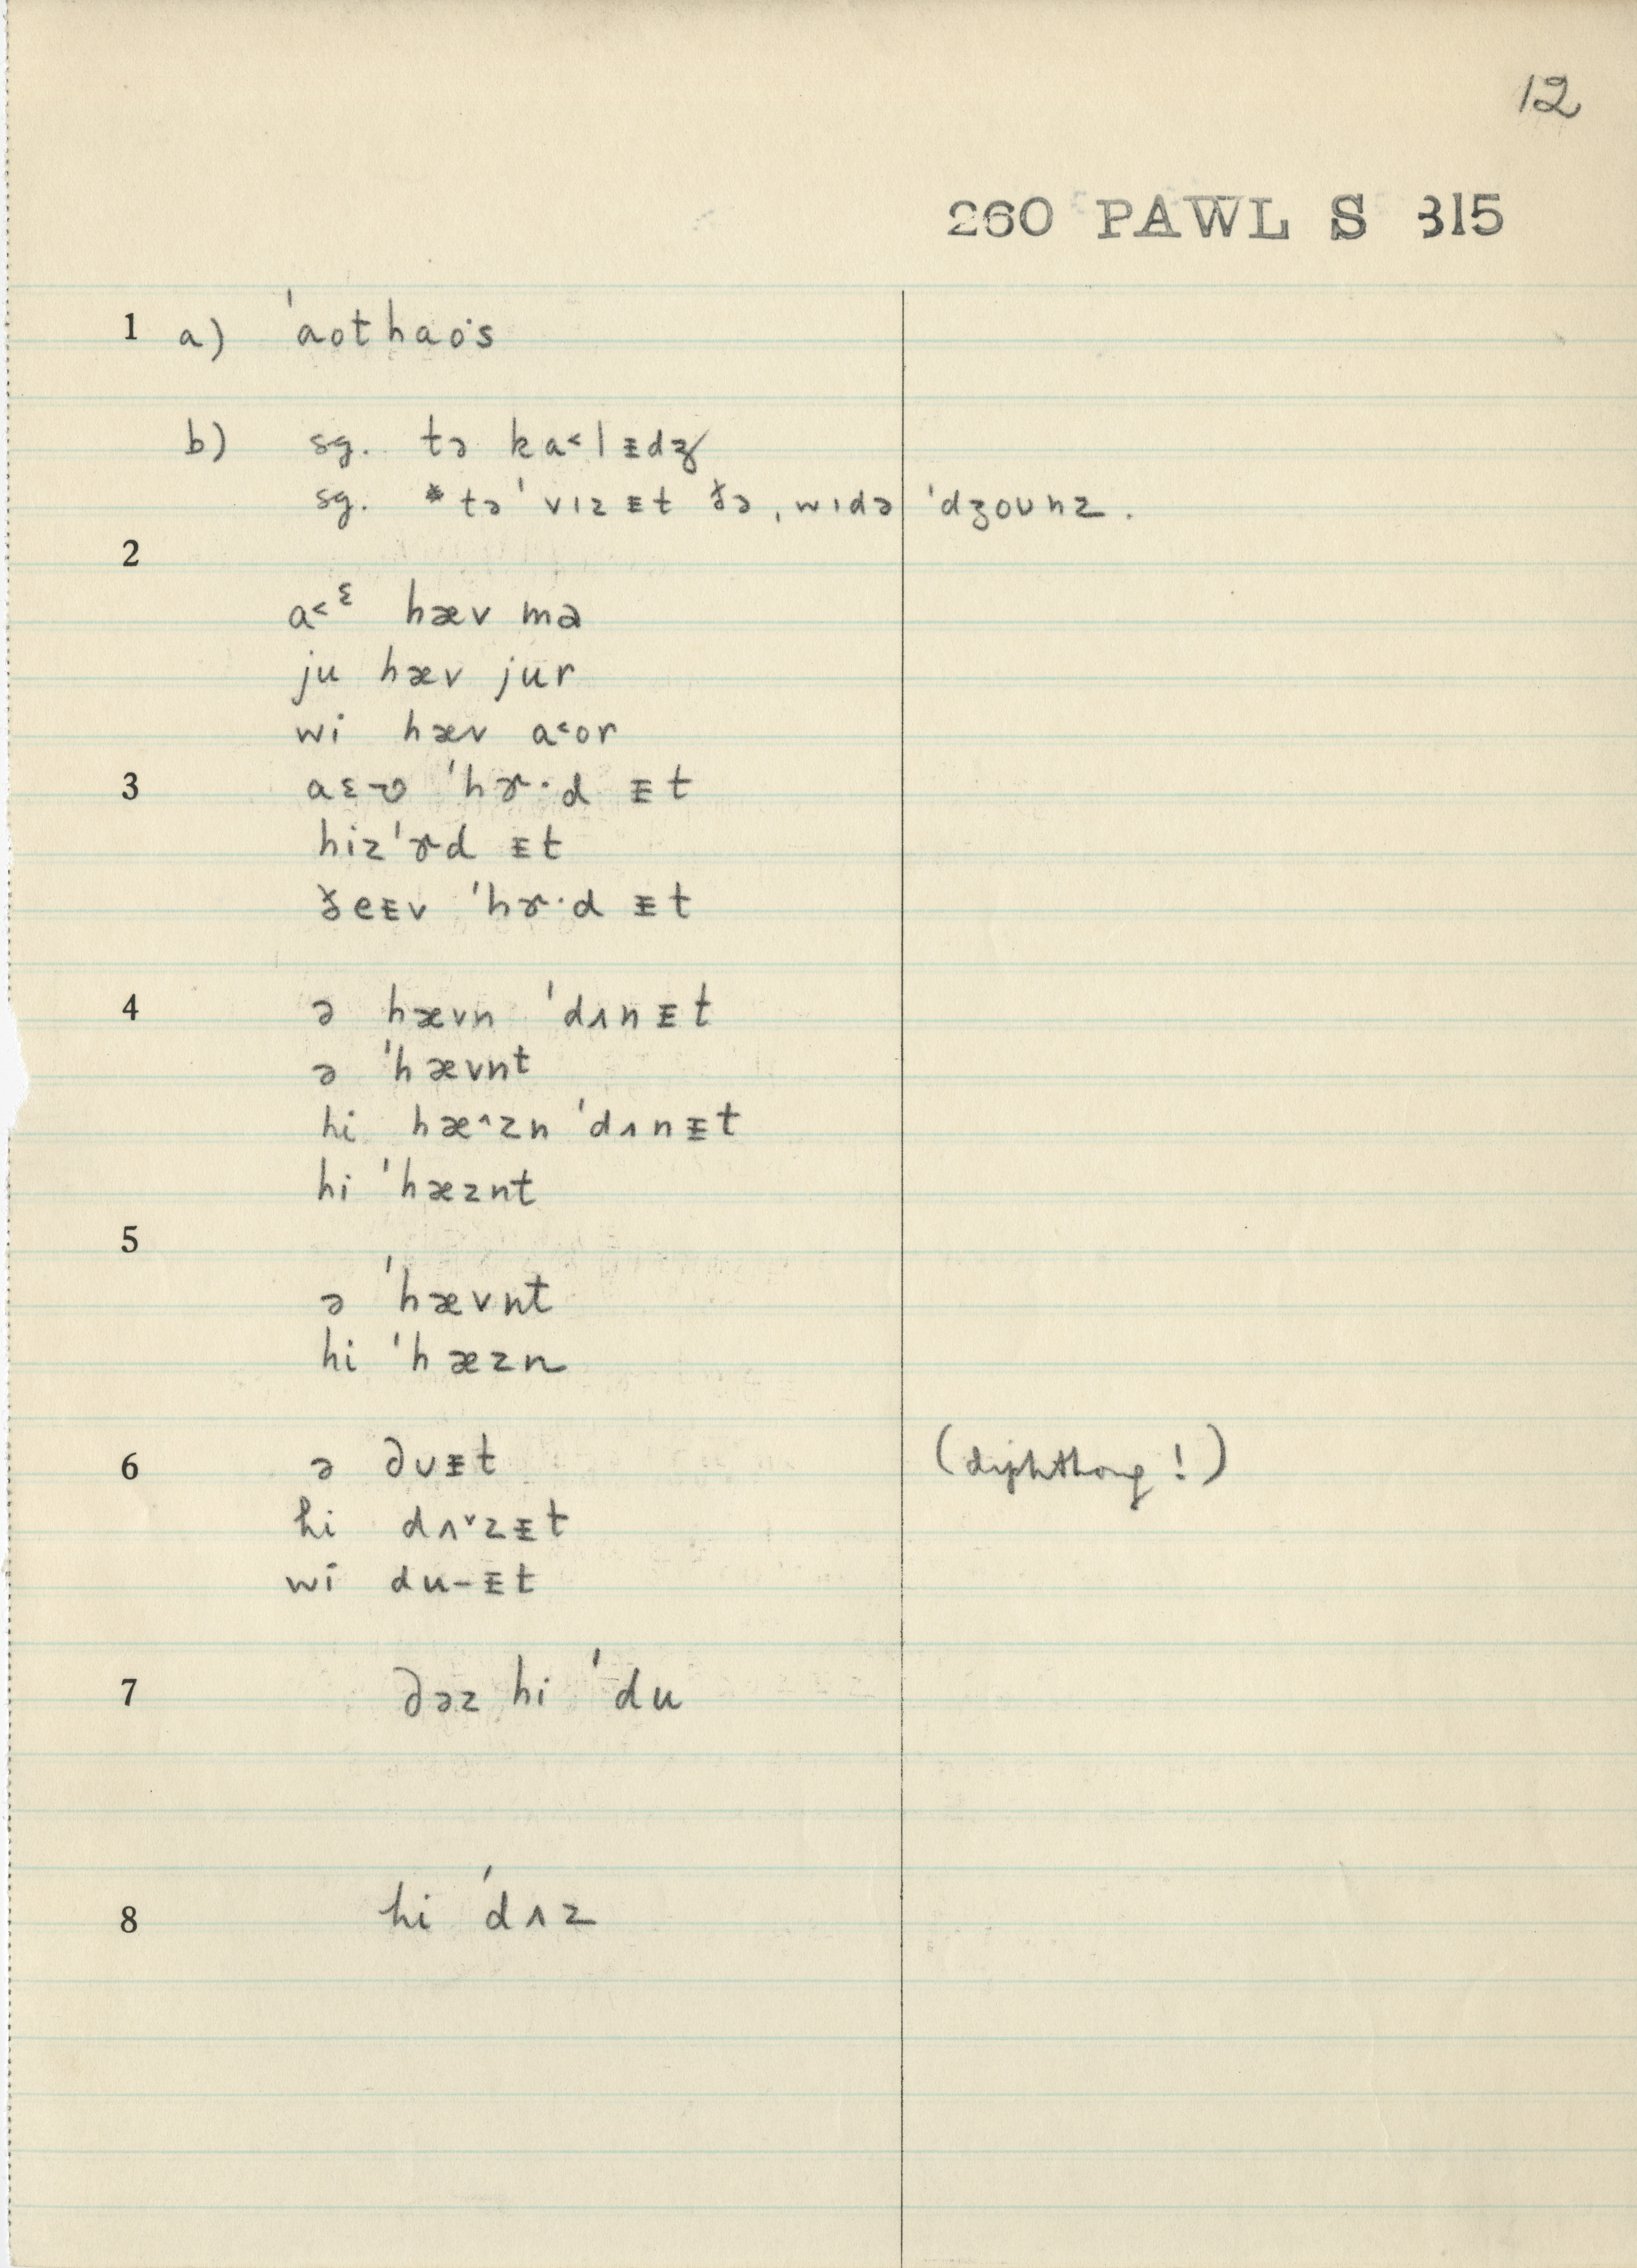 12
260 PAWL S 315
1 a) ˈaothao·s
b) sg. tə ka˂lᵻdʒ
sg. * təˈvɪzᵻt ðə, wɪdə ˈdʒoʊnz.
2
a˂ᵋ hæv mə
ju hæv jur
wi hæv a˂or
3 aɛ-v ˈhɚ·d ᵻt
hizˈɚd ᵻt
ðeᵻv ˈhɚ·d ᵻt
4 ə hævn ˈdʌnᵻt
ə ˈhævnt
hi hæ˄zn ˈdʌnᵻt
hi ˈhæznt
5
ə ˈhævnt
hi ˈhæzn
6 ə dʊᵻt (diphthong!)
hi dʌ˅zᵻt
wi du-ᵻt
7 dəz hi ˈdu
8 hi ˈdʌz